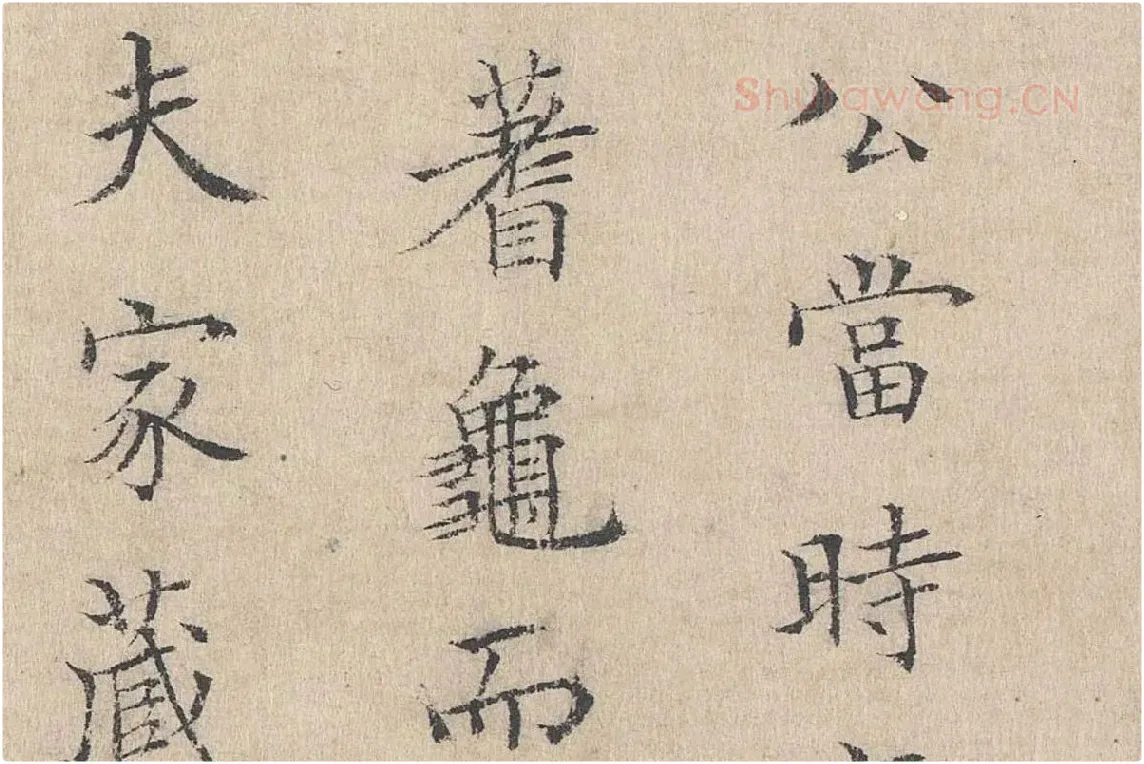 Shufawang.CN
公當時
蓍龜而
夫家藏